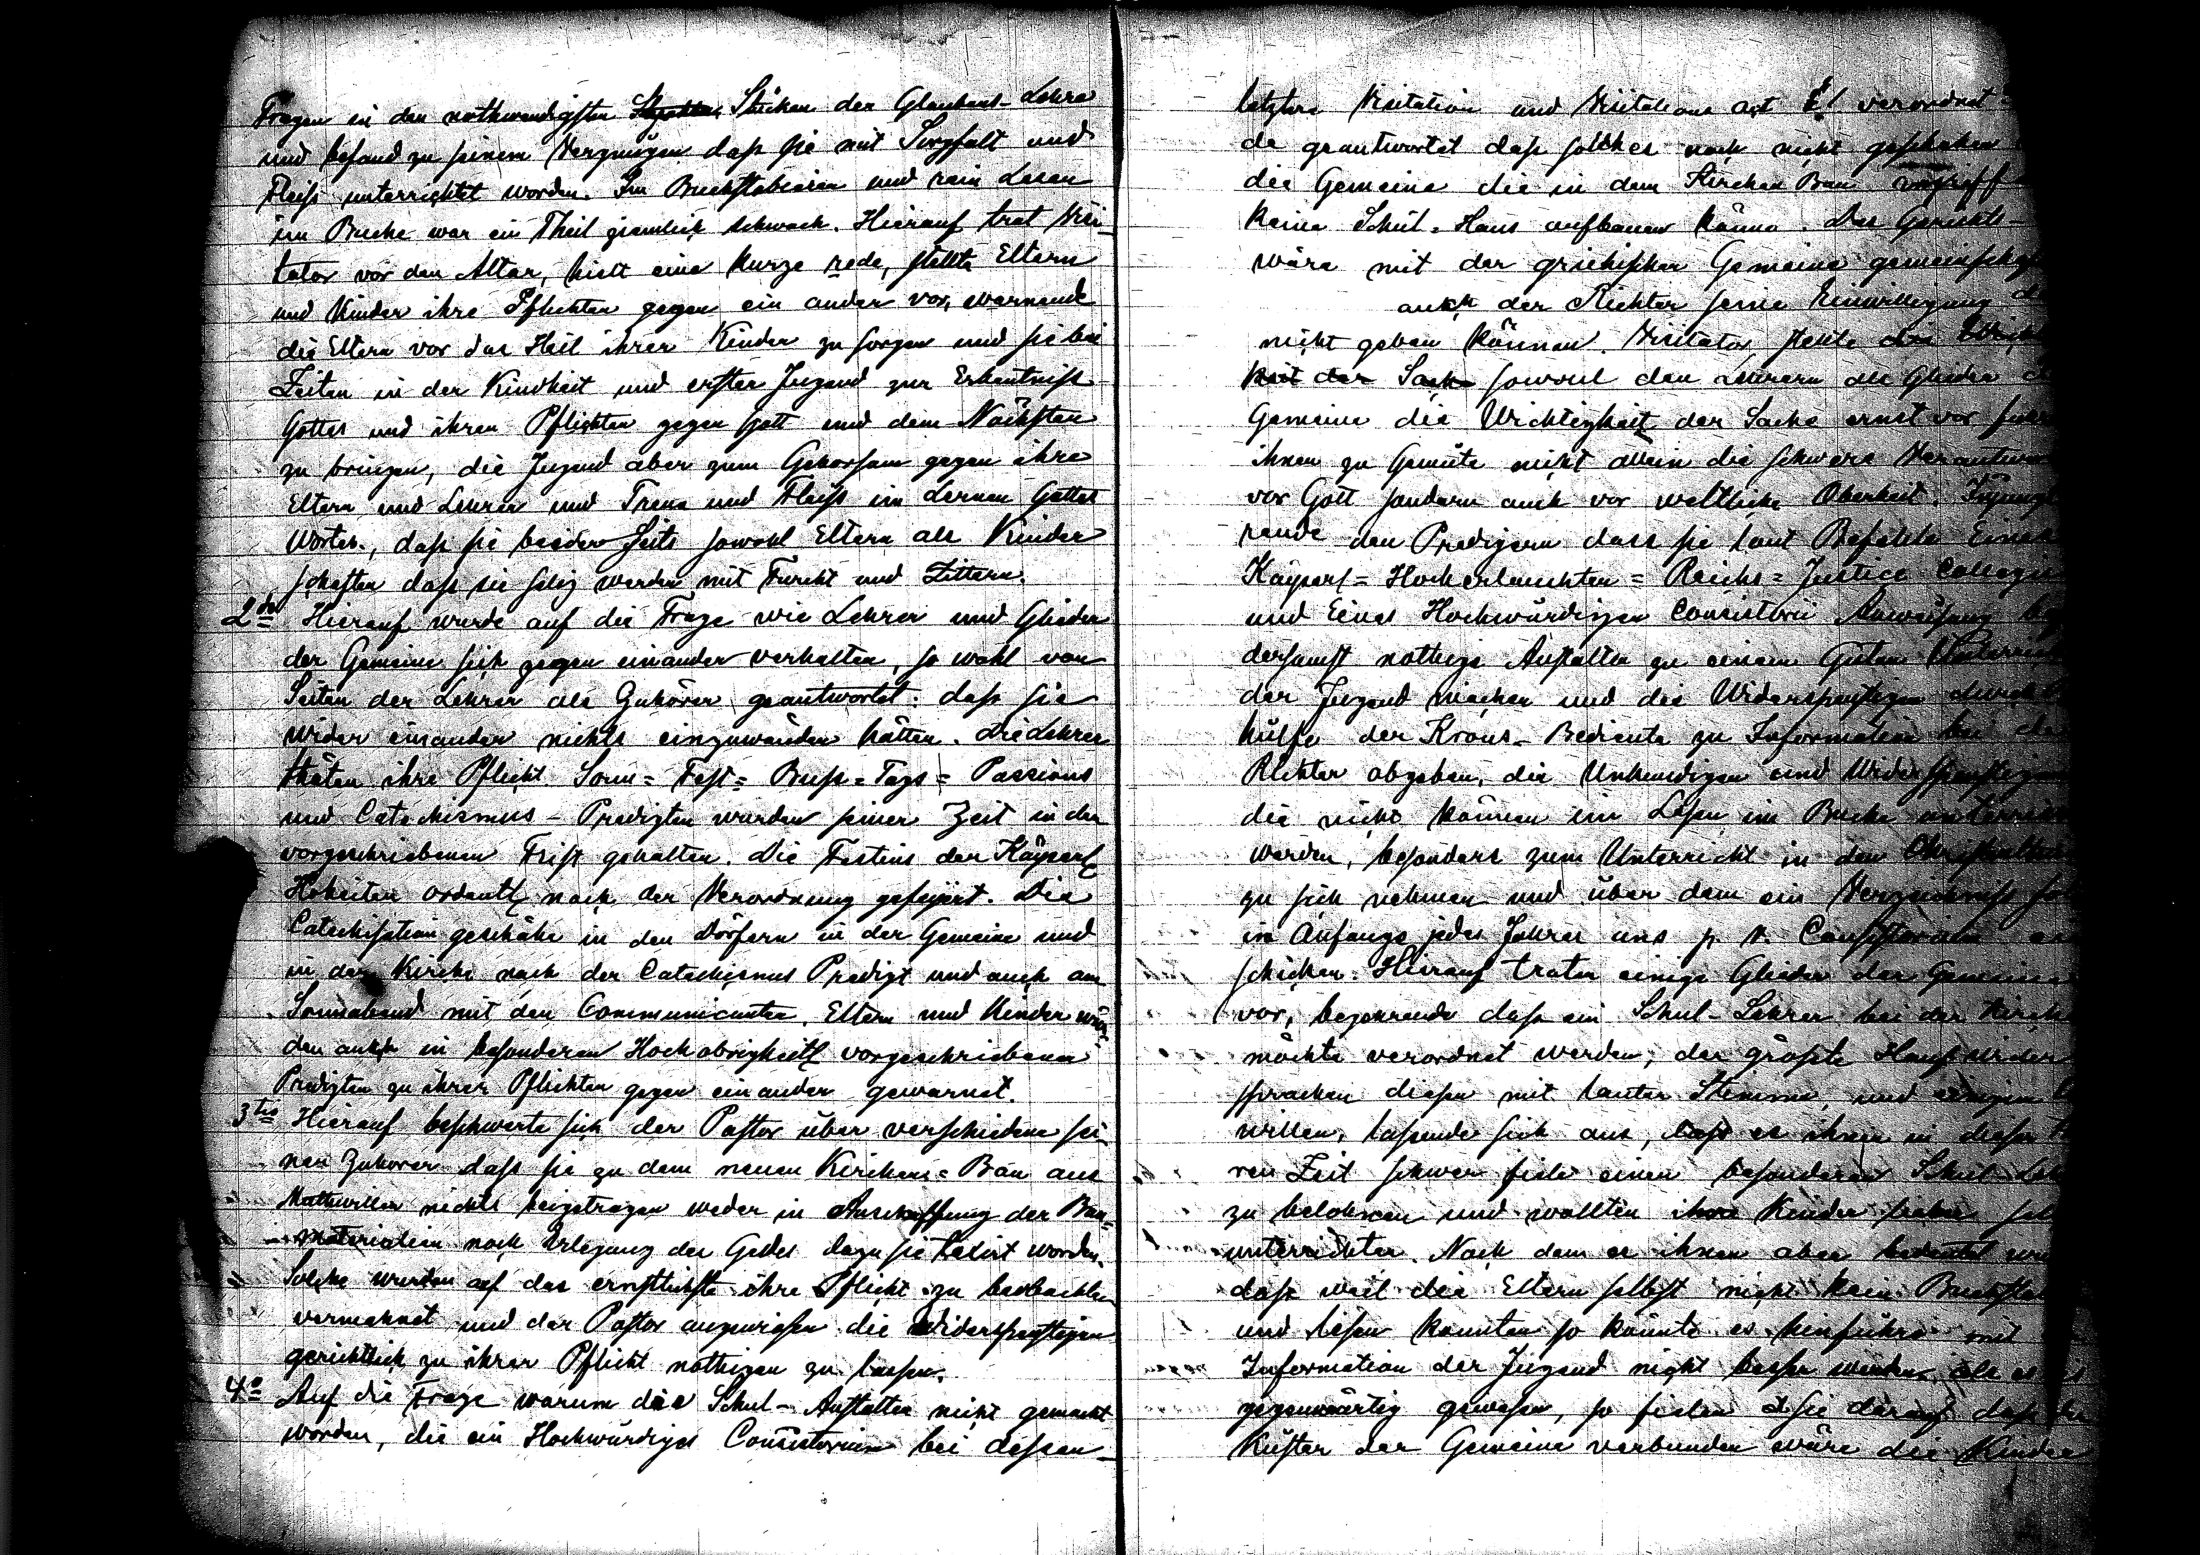 Fragen in den nothwendigsten Stücken der Glaubens-Lehre
und befand zu seinem Vergnügen daß sie mit Sorgfalt und
Fleiß unterrichtet worden. Im Buchstabieren und rein Lesen
im Buche war ein Theil ziemlich schwach. Hierauf trat Visi-
tator vor den Altar, hielt eine kurze rede, stellte Eltern
und Kinder ihre Pflichten gegen ein ander vor, warnend
die Eltern vor das Heil ihrer Kinder zu sorgen und sie bei
Zeiten in der Kindheit und erster Jugend zur Erkentniß
Gottes und ihren Pflichten gegen Gott und dem Nächsten
zu bringen, die Jugend aber zum Gehorsam gegen ihre
Eltern und Lehrer und Treue und Fleiß im Lernen Gottes
Wortes, daß sie beider Seits sowohl Eltern als Kinder
schaften daß sie selig werden mit Furcht und Zittern.
2do Hierauf wurde auf die Frage wie Lehrer und Glieder
der Gemeine sich gegen einander verhalten, so wohl von
Seiten der Lehrer als Zuhörer geantwortet: daß sie
wider einander nichts einzuwänden hätten. Die Lehrer
thäten ihre Pflicht. Sonn= Fest= Buß=Tags= Passions
und Catechismus-Predigten wurden seiner Zeit in der
vorgeschriebenen Frist gehalten. Die Festins der Kayserl
Hoheiten ordentl nach der Verordnung gefeyert. Die
Catechisation geschähe in den Dörfern in der Gemeine und
in der Kirche nach der Catechismus Predigt und auch am
Sonnabend mit den Communicanten. Eltern und Kinder wür-
den auch in besonderen Hochobrigkeitl vorgeschriebenen
Predigten zu ihrer Pflichten gegen einander gewarnet.
3tio Hierauf beschwerte sich der Pastor über verschiedene sei-
nen Zuhorer daß sie zu dem neuen Kirchen=Bau aus
Muthwillen nichts beigetragen weder in Anschaffung der Bau=
materialien noch Erlegung des Geldes dazu sie taxirt worden.
Solche wurden auf das ernstlichste ihre Pflicht zu beobachten
vermahnet und der Pastor angewiesen die Widerspenstigen
gerichtlich zu ihrer Pflicht nöthigen zu lassen.
4o Auf die Frage warum die Schul-Anstalten nicht gemacht
worden, die ein Hochwürdiges Consistorium bei dessen
letztere Visitation und Visitations act verordnet
de geantwortet daß solches noch nicht geschehen
die Gemeine die in dem Kirchen Bau
keine Schul=Haus aufbauen könne. Das Gerichts-
wäre mit der griechischen Gemeine
auch der Richter seine Einwilligung
nicht geben können. Visitator stellte
sowohl den Lehrern als Glieder
Gemeine die Wichtigkeit der Sache ernst vor
ihnen zu Gemüte nicht allein die schwere
vor Gott sondern auch vor weltliche Oberkeit.
rende den Predigern dass sie laut Befehle Eines
Kayserl=Hocherlauchten=Reichs=Justice
und Eines Hochwürdigen Consistorii Anweisung
dersamst nöthige Anstalten zu einem Guten
der Jugend machen und die Widerspenstigen
hülfe der Krons-Bediente zu Information bei
Richter abgeben, die Unkundigen und
die nicht können im Lesen im Buche
werden, besonders zum Unterricht in dem
zu sich nehmen und über dem ein
im Anfange jedes Jahres ans p. v. Consistorium
schicken. Hierauf traten einige Glieder der Gemeine
vor, begehrende daß ein Schul-Lehrer bei der Kirche
möchte verordnet werden; der größte Hauf wider
sprachen diesen mit lauter Stimme, und
willen, lassende sich aus, daß es ihnen in dieser
ren Zeit schwer fiele einen besonderen Schul-
zu belohnen und wollten ihre Kinder
unterrichten. Nach dem es ihnen aber bedeutet
daß weil die Eltern selbst nicht kein
und lesen konnten so könnte es hinführo mit
Information der Jugend nicht besser werden als es
gegenwärtig gewesen, so fielen sie darauf daß
Küster der Gemeine verbunden wäre die Kinder